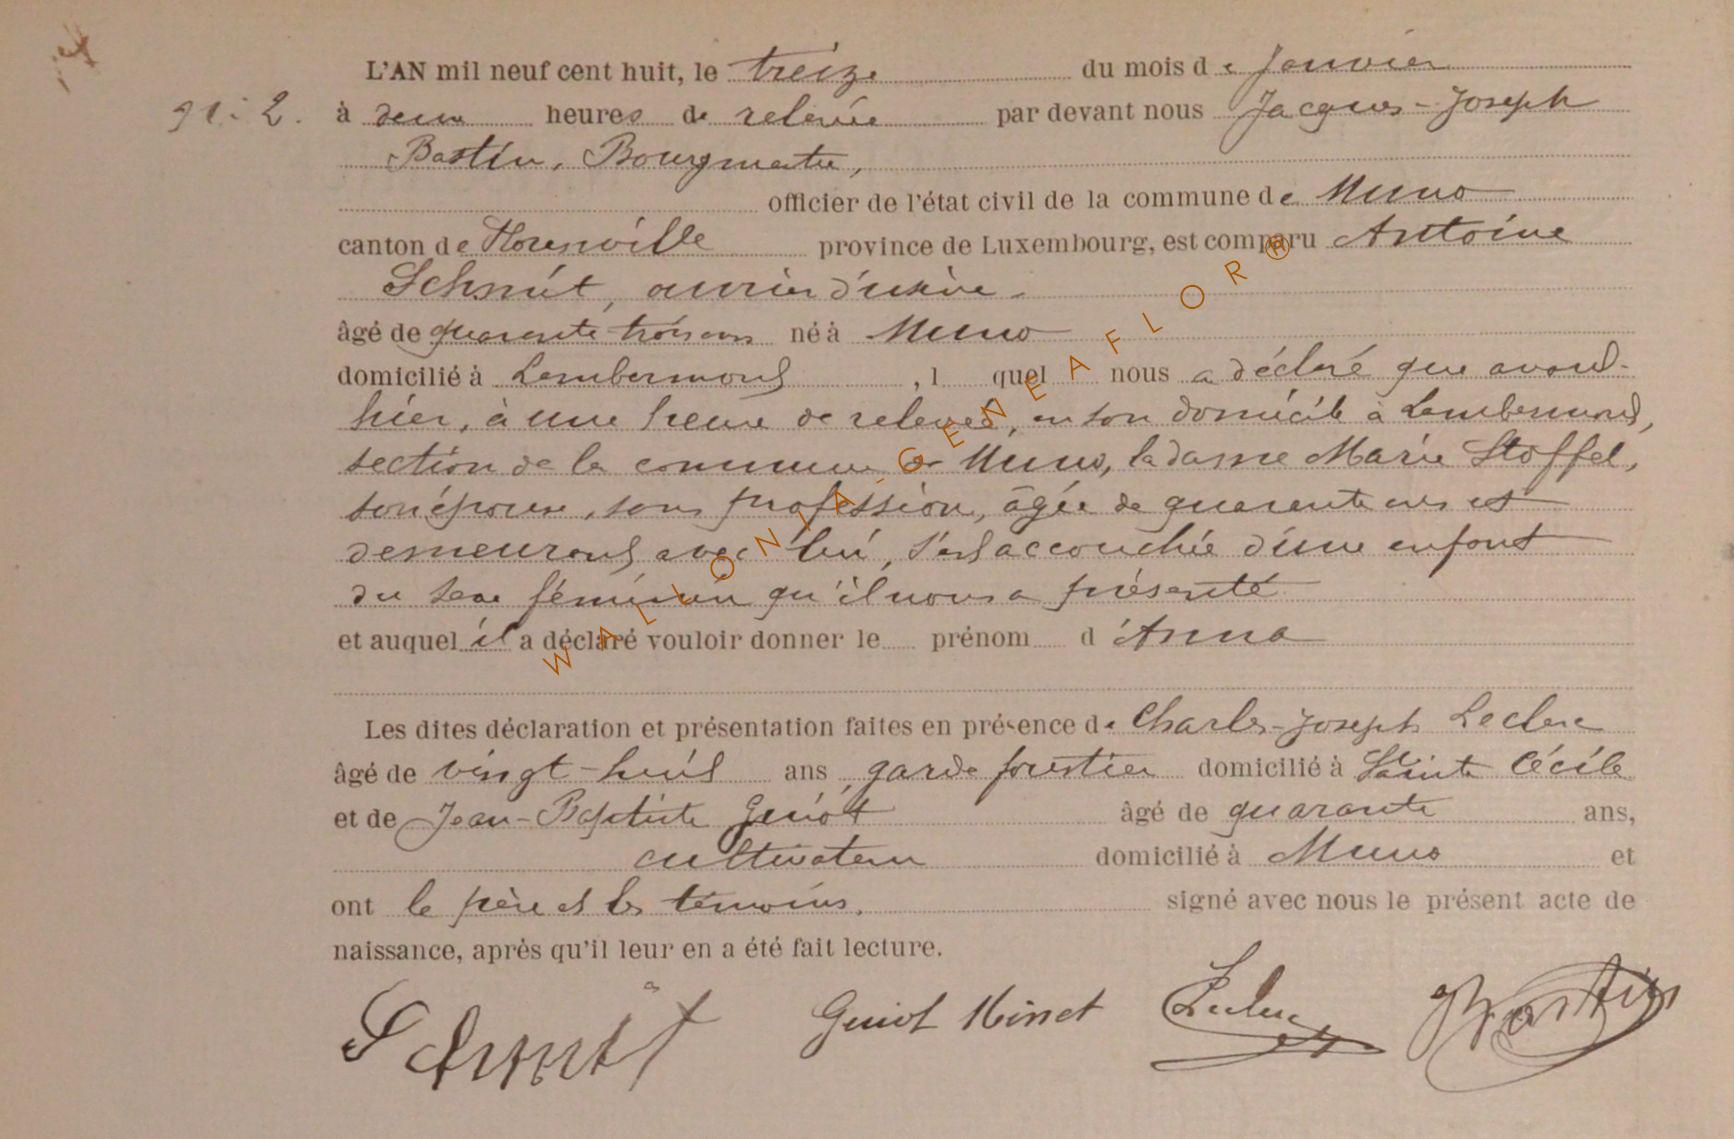 L'AN mil neuf cent huit, le treize du mois de Janvier
N: 2. à deux heures de relevée par devant nous Jacques-Joseph
Bastin, Bourgmestre,
officier de l'état civil de la commune de Muno
canton de Florenville province de Luxembourg, est comparu Antoine
Schmit, ouvrier d'usine.
âgé de quarante trois ans né à Muno
domicilié à Lambermont, l quel nous a déclaré que avant-
hier, à une heure de relevée, en son domicile à Lambermont,
section de la commune de Muno, la dame Marie Stoffel,
son épouse, sans profession, âgée de quarante ans et
demeurant avec lui, s'est accouchée d'une enfant
du sexe féminin qu'il nous a présenté
et auquel il a déclaré vouloir donner le prénom d'Anna
Les dites déclaration et présentation faites en présence de Charles-Joseph Leclerc
âgé de vingt-huit ans, garde forestier domicilié à Sainte Cécile
et de Jean-Baptiste Guiot âgé de quarante ans,
cultivateur domicilié à Muno et
ont le père et les témoins, signé avec nous le présent acte de
naissance, après qu'il leur en a été fait lecture.
Schmit Guiot Minet Leclerc Bastin
WALLONIA-GENEAFLOR®